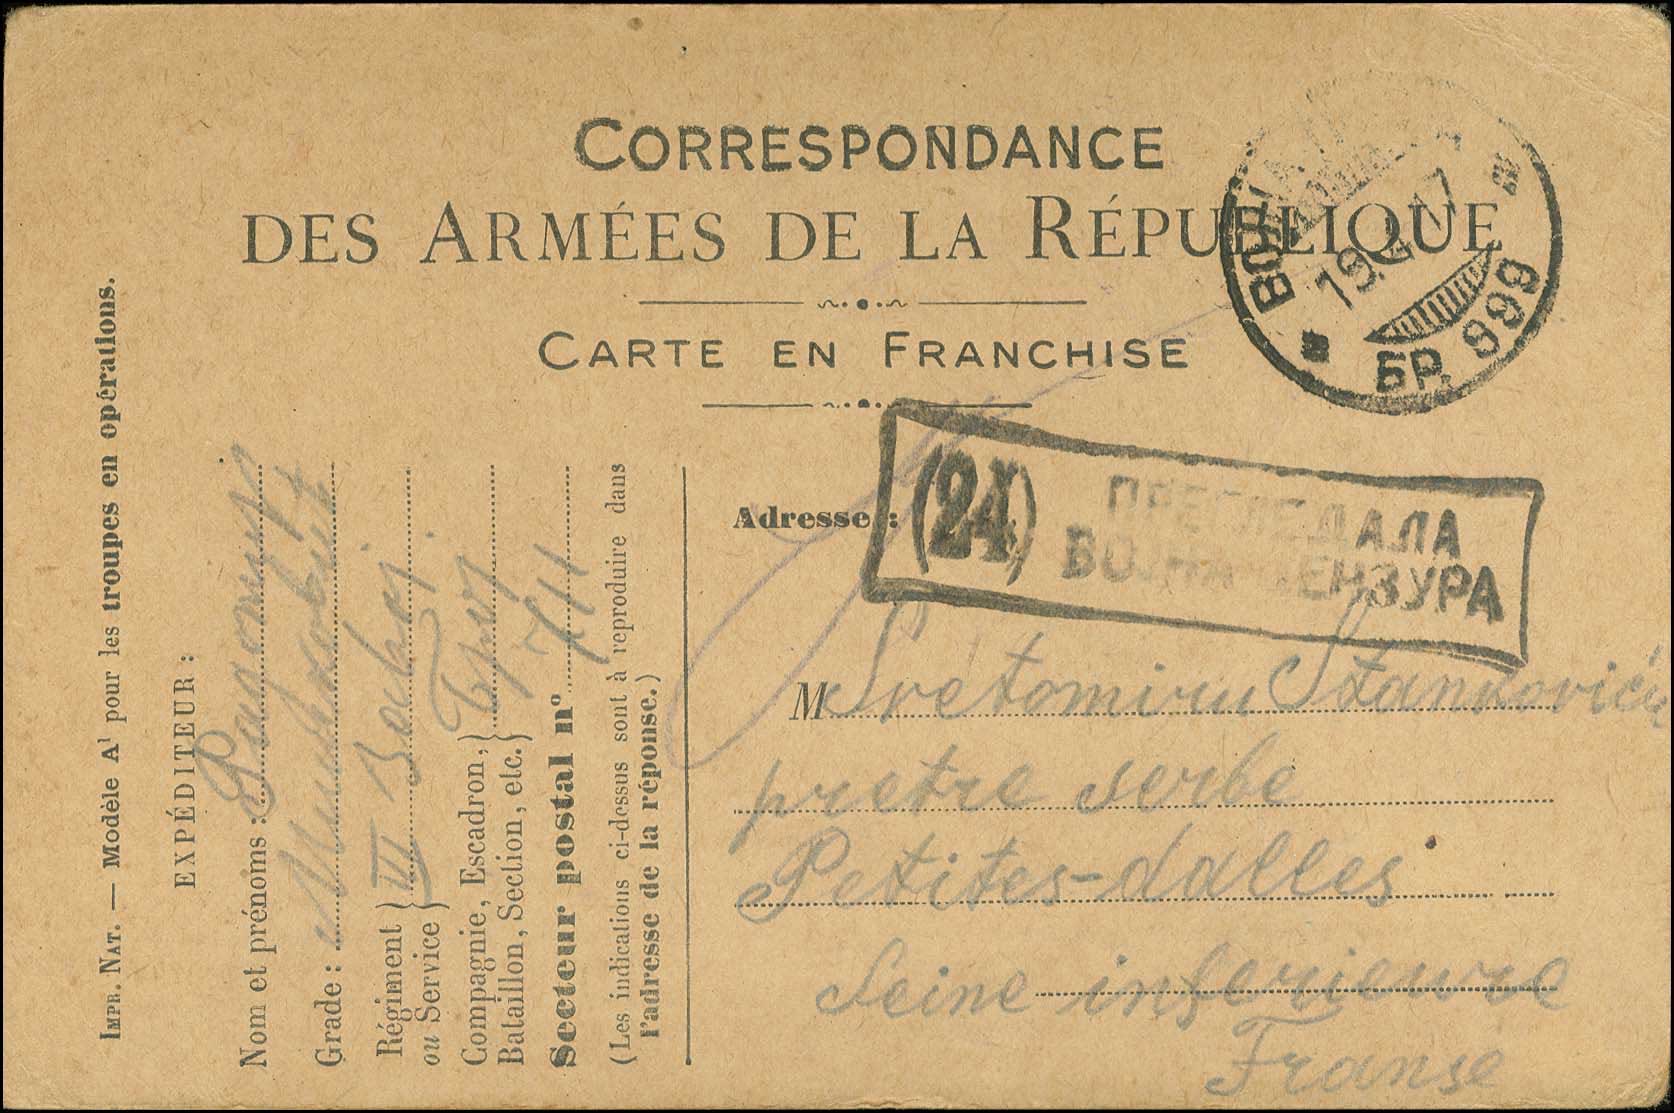 CORRESPONDANCE
DES ARMÉES DE LA RÉPUBLIQUE
CARTE EN FRANCHISE
19. 17
БР. 999
(24) ПРЕГЛЕДАЛА
ВОЈНА ЦЕНЗУРА
Adresse :
M Svetomiru Stankoviću
pretre serbe
Petites-dalles
Seine inferieure
Franse
IMPR. NAT. — Modèle A¹ pour les troupes en opérations.
EXPÉDITEUR :
Nom et prénoms :
Grade :
Régiment
ou Service } III
Compagnie, Escadron,
Bataillon, Section, etc. }
Secteur postal nº
(Les indications ci-dessus sont à reproduire dans
l'adresse de la réponse.)